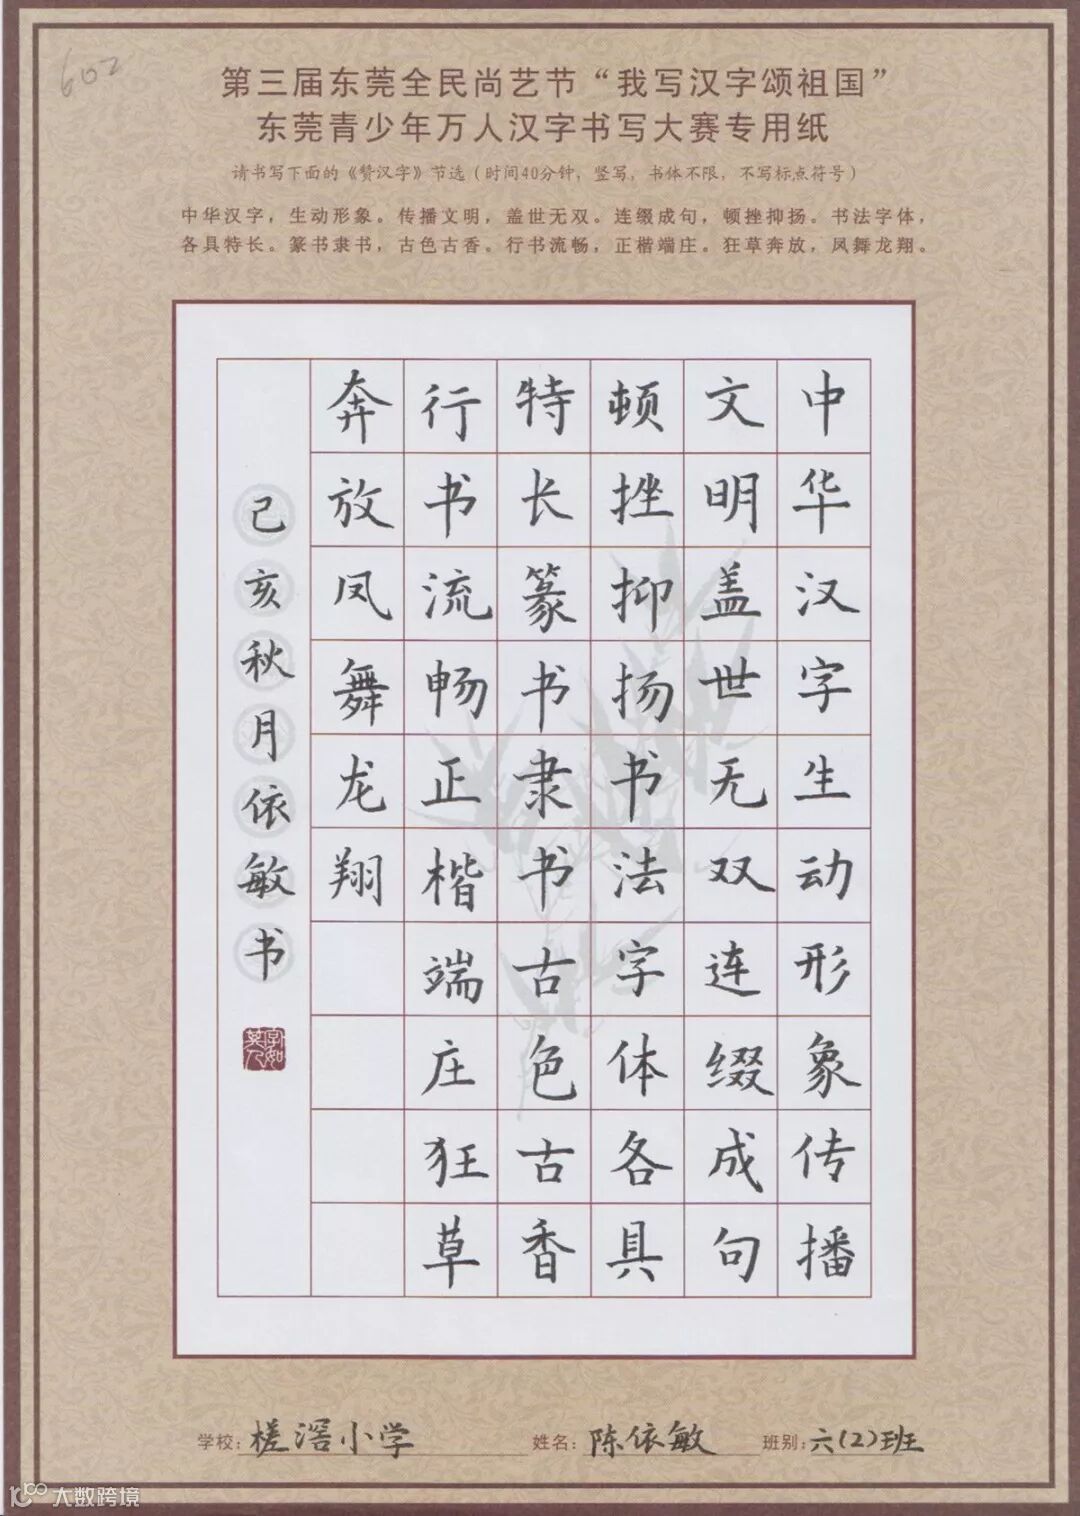 602
第三届东莞全民尚艺节“我写汉字颂祖国”
东莞青少年万人汉字书写大赛专用纸
请书写下面的《赞汉字》节选（时间40分钟，竖写，书体不限，不写标点符号）
中华汉字，生动形象。传播文明，盖世无双。连缀成句，顿挫抑扬。书法字体，
各具特长。篆书隶书，古色古香。行书流畅，正楷端庄。狂草奔放，凤舞龙翔。
中华汉字生动形象传播
文明盖世无双连缀成句
顿挫抑扬书法字体各具
特长篆书隶书古色古香
行书流畅正楷端庄狂草
奔放凤舞龙翔
己亥秋月依敏书
字如其人
学校：槎滘小学 姓名：陈依敏 班别：六(2)班
大数跨境